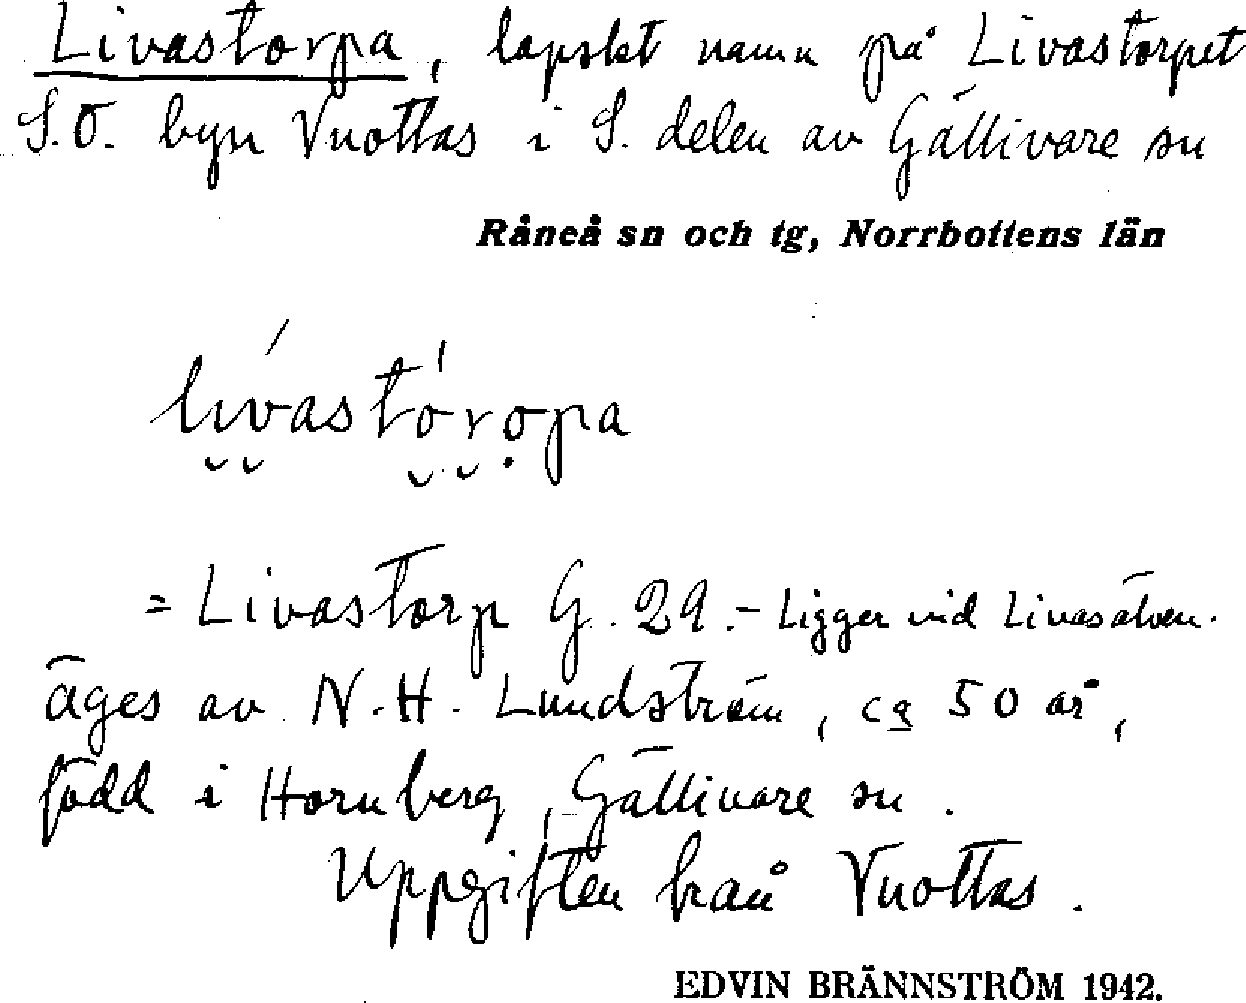 Livastorpa, lapskt namn på Livastorpet
S.O. byn Vuottas i S. delen av Gällivare sn
Råneå sn och tg, Norrbottens län
lívastórọpa
= Livastorp G. 29. - Ligger vid Livasälven.
äges av N.H. Lundström, ca 50 år,
född i Hornberg, Gällivare sn.
Uppgiften från Vuottas.
EDVIN BRÄNNSTRÖM 1942.